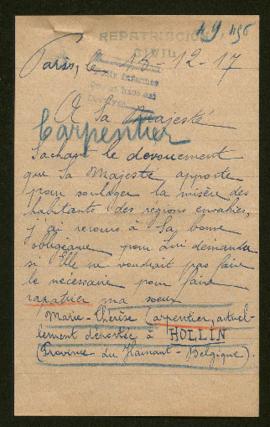 49.496
REPATRIACION
CIVIL
Paris, le 13-12-17
A Sa Majesté
Carpentier
Sachant le dévouement
que Sa Majesté apporte
pour soulager la misère des
habitants des régions envahies,
j'ai recours à Sa bonne
obligeance pour Lui demander
si Elle ne voudrait pas faire
le nécessaire pour faire
rapatrier ma soeur
Marie-Thérèse Carpentier, actuel-
lement déportée à HOLLIN
(Province du Hainaut - Belgique).